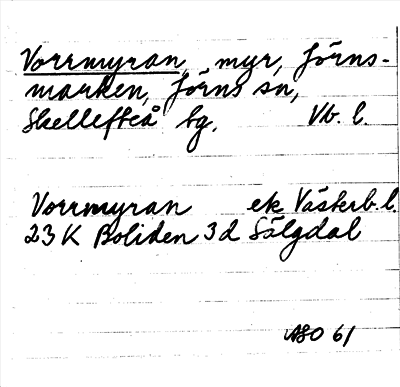 Vorrmyran, myr, Jörns-
marken, Jörns sn,
Skellefteå bg. Vb. l.
Vorrmyran ek Västerb. l.
23 K Boliden 3d Sälgdal
ASO 61